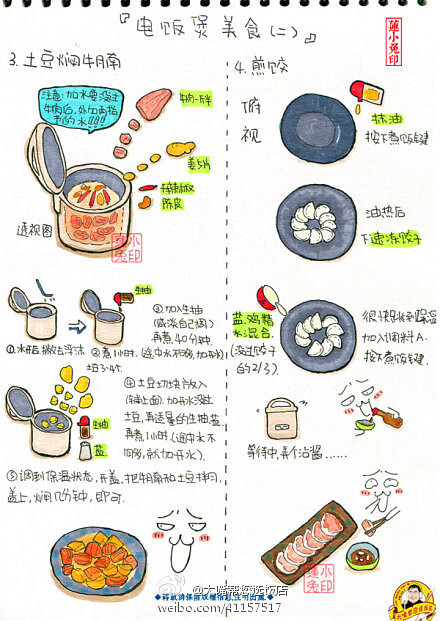 『电饭煲美食(二)』
莲小兔印
3. 土豆焖牛腩
注意:加水要没过
牛肉后,外加两指
节的水!!!
牛肉一斤半
姜5片
干辣椒
陈皮
透视图
莲小兔印
①水开后,撇去浮沫
②煮1小时
生抽
③加入生抽
(咸淡自己调)
再煮40分钟.
④土豆切块后放入
土豆,再适量的生抽,盐
再煮1小时(途中水不
够,就加开水).
生抽
盐
⑤调到保温状态,开盖,把牛腩和土豆拌匀.
盖上,焖几分钟,即可.
4. 煎饺
俯视
抹油
按下煮饭键
油热后
下速冻饺子
盐.鸡精
水.混合.
(没过饺子
的2/3).
很快跳到保温
加入调料A.
按下煮饭键.
等待中,弄个沾酱……
莲小兔印
@大嘴带您选饭店
weibo.com/41157517